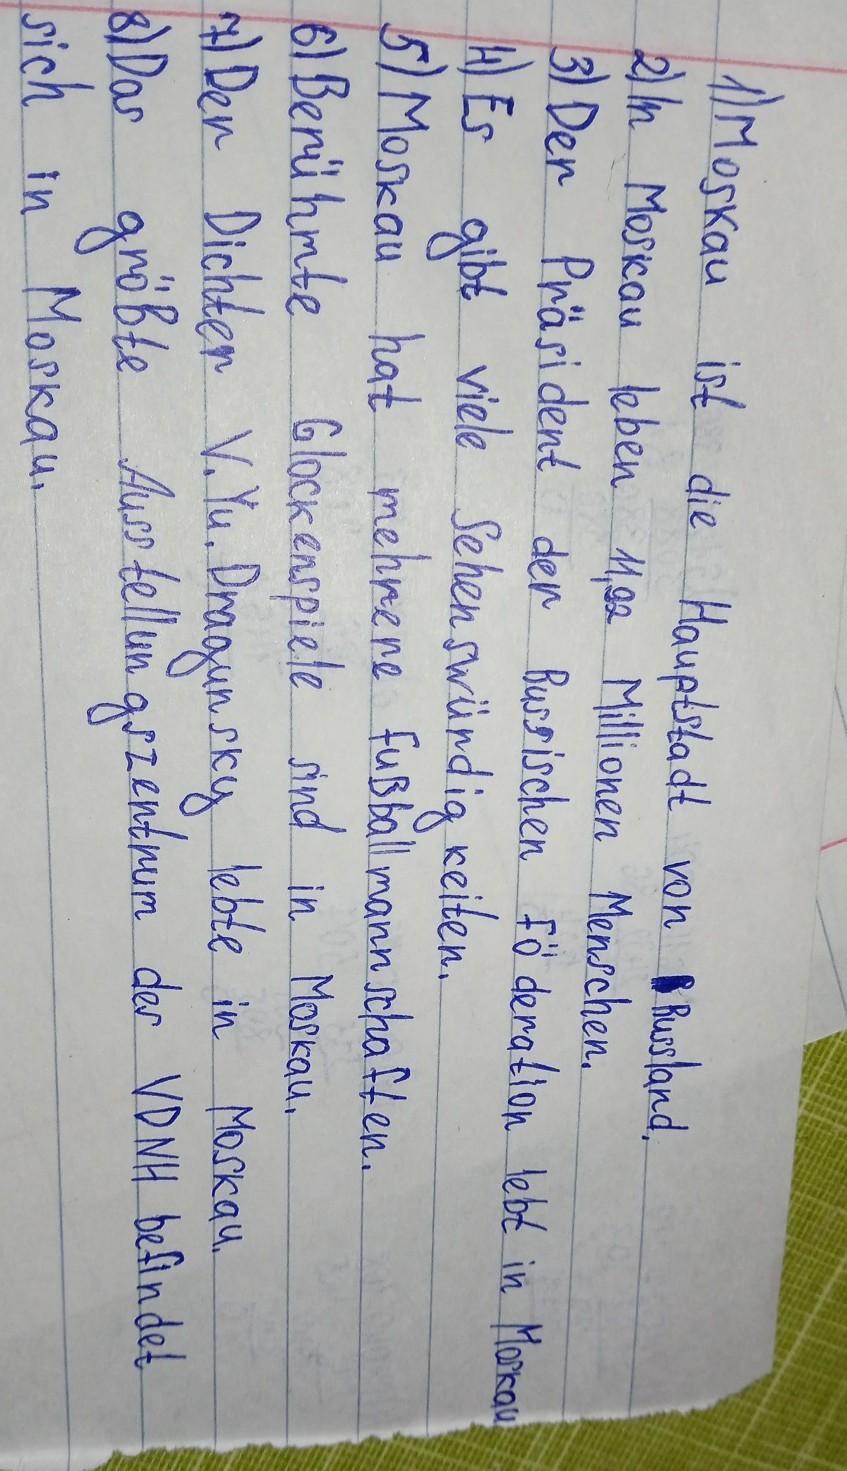 1) Moskau ist die Hauptstadt von Russland.
2) In Moskau leben 11,92 Millionen Menschen.
3) Der Präsident der Russischen föderation lebt in Moskau
4) Es gibt viele Sehenswürdigkeiten.
5) Moskau hat mehrere fußballmannschaften.
6) Berühmte Glockenspiele sind in Moskau.
7) Der Dichter V. Yu. Dragunsky lebte in Moskau.
8) Das größte Ausstellungszentrum der VDNH befindet
sich in Moskau.